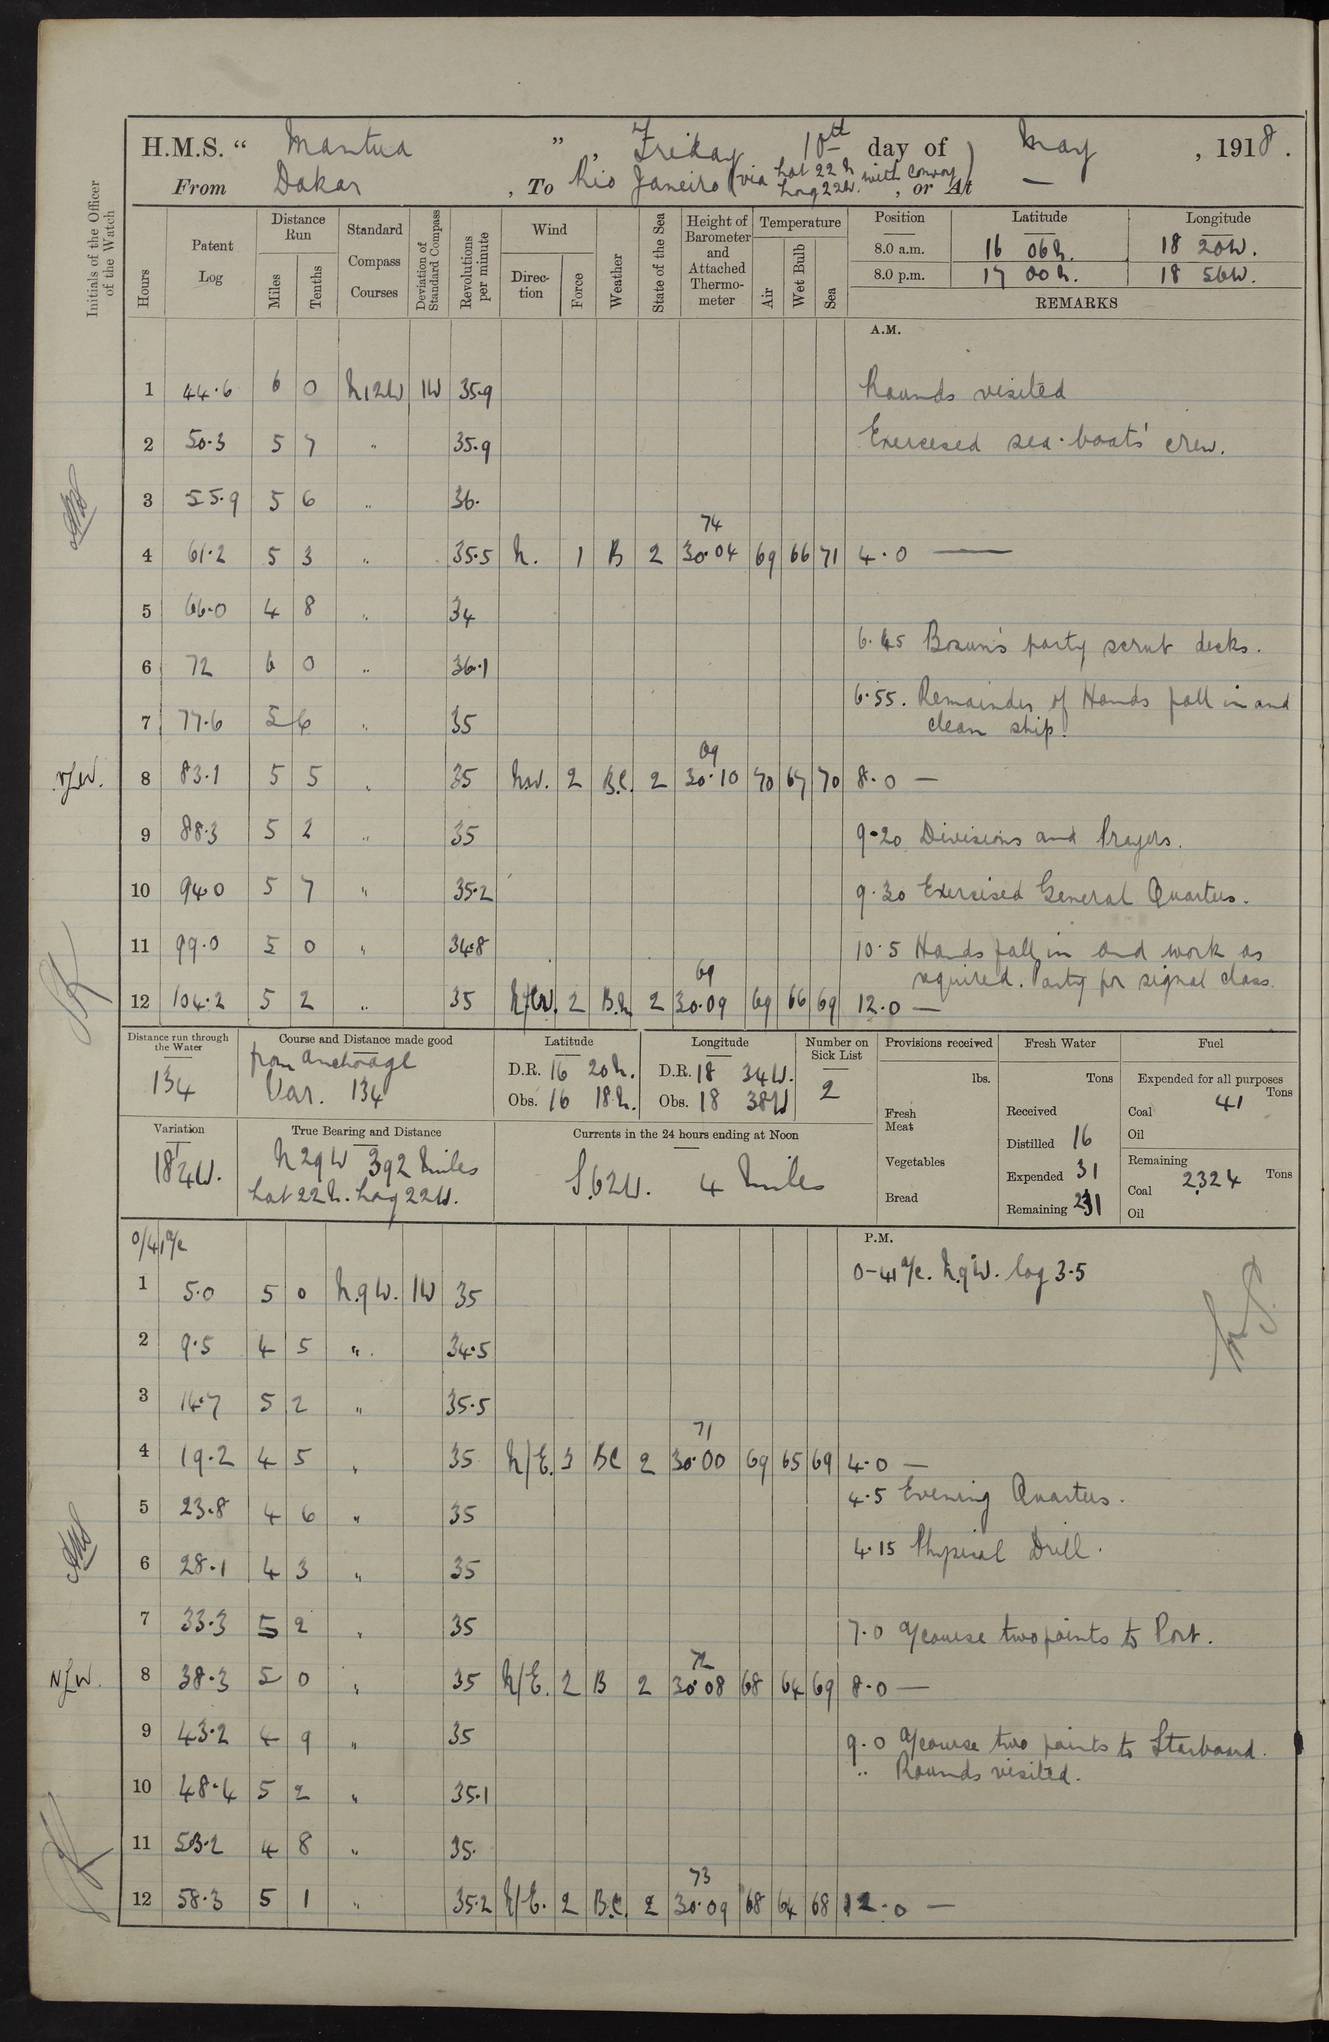 H.M.S. “ Mantua ”, Friday 10th day of May, 1918.
From Dakar, To Rio Janeiro (via Lat 22 N Long 22W. with convoy), or At —
Initials of the Officer of the Watch
Hours Patent Log Distance Run Miles Tenths Standard Compass Courses Deviation of Standard Compass Revolutions per minute Wind Direction Force Weather State of the Sea Height of Barometer and Attached Thermometer Temperature Air Wet Bulb Sea Position Latitude Longitude
8.0 a.m. 16 06 N. 18 20W.
8.0 p.m. 17 00 N. 18 56W.
REMARKS
A.M.
1 44.6 6 0 N12W 1W 35.9 Rounds visited
2 50.3 5 7 " 35.9 Exercesed sea-boats' crew.
3 55.9 5 6 " 36.
74
4 61.2 5 3 " 35.5 N. 1 B 2 30.04 69 66 71 4.0 —
5 66.0 4 8 " 34
6.45 Bosun's party scrub decks.
6 72 6 0 " 36.1
6.55. Remainder of Hands fall in and
7 77.6 5 6 " 35 clean ship.
69
NJW. 8 83.1 5 5 " 35 NW. 2 B.C. 2 30.10 70 67 70 8.0 —
9 88.3 5 2 " 35 9.20 Divisions and Prayers.
10 94.0 5 7 " 35.2 9.30 Exercised General Quarters.
11 99.0 5 0 " 34.8 10.5 Hands fall in and work as
69 required. Party for signal class.
12 104.2 5 2 " 35 2 2 30.09 69 66 69 12.0 —
Distance run through the Water 134
Course and Distance made good from anchorage Var. 134
Latitude D.R. 16 20 N. Obs. 16 18 N.
Longitude D.R. 18 34W. Obs. 18 38W
Number on Sick List 2
Provisions received lbs. Fresh Meat Vegetables Bread
Fresh Water Tons Received Distilled 16 Expended 31 Remaining 231
Fuel Expended for all purposes Tons Coal 41 Oil Remaining Tons Coal 2324 Oil
Variation 18¼W.
True Bearing and Distance N29W 392 Miles Lat 22 N. Long 22W.
Currents in the 24 hours ending at Noon S.62W. 4 Miles
P.M.
0/41 a/c
0-41 a/c. N.9W. log 3.5
1 5.0 5 0 N.9W. 1W 35
2 9.5 4 5 " 34.5
3 14.7 5 2 " 35.5
71
4 19.2 4 5 " 35 N/E. 3 BC 2 30.00 69 65 69 4.0 —
4.5 Evening Quarters.
5 23.8 4 6 " 35
4.15 Physical Drill.
6 28.1 4 3 " 35
7 33.3 5 2 " 35 7.0 a/course two points to Port.
72
NJW. 8 38.3 5 0 " 35 N/E. 2 B 2 30.08 68 64 69 8.0 —
9 43.2 4 9 " 35 9.0 a/course two points to Starboard.
" Rounds visited.
10 48.4 5 2 " 35.1
11 53.2 4 8 " 35.
73
12 58.3 5 1 " 35.2 N/E. 2 B.C. 2 30.09 68 64 68 12.0 —